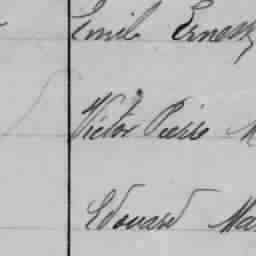 Emil Ernest
Victor Pierre M
Edouard Ma